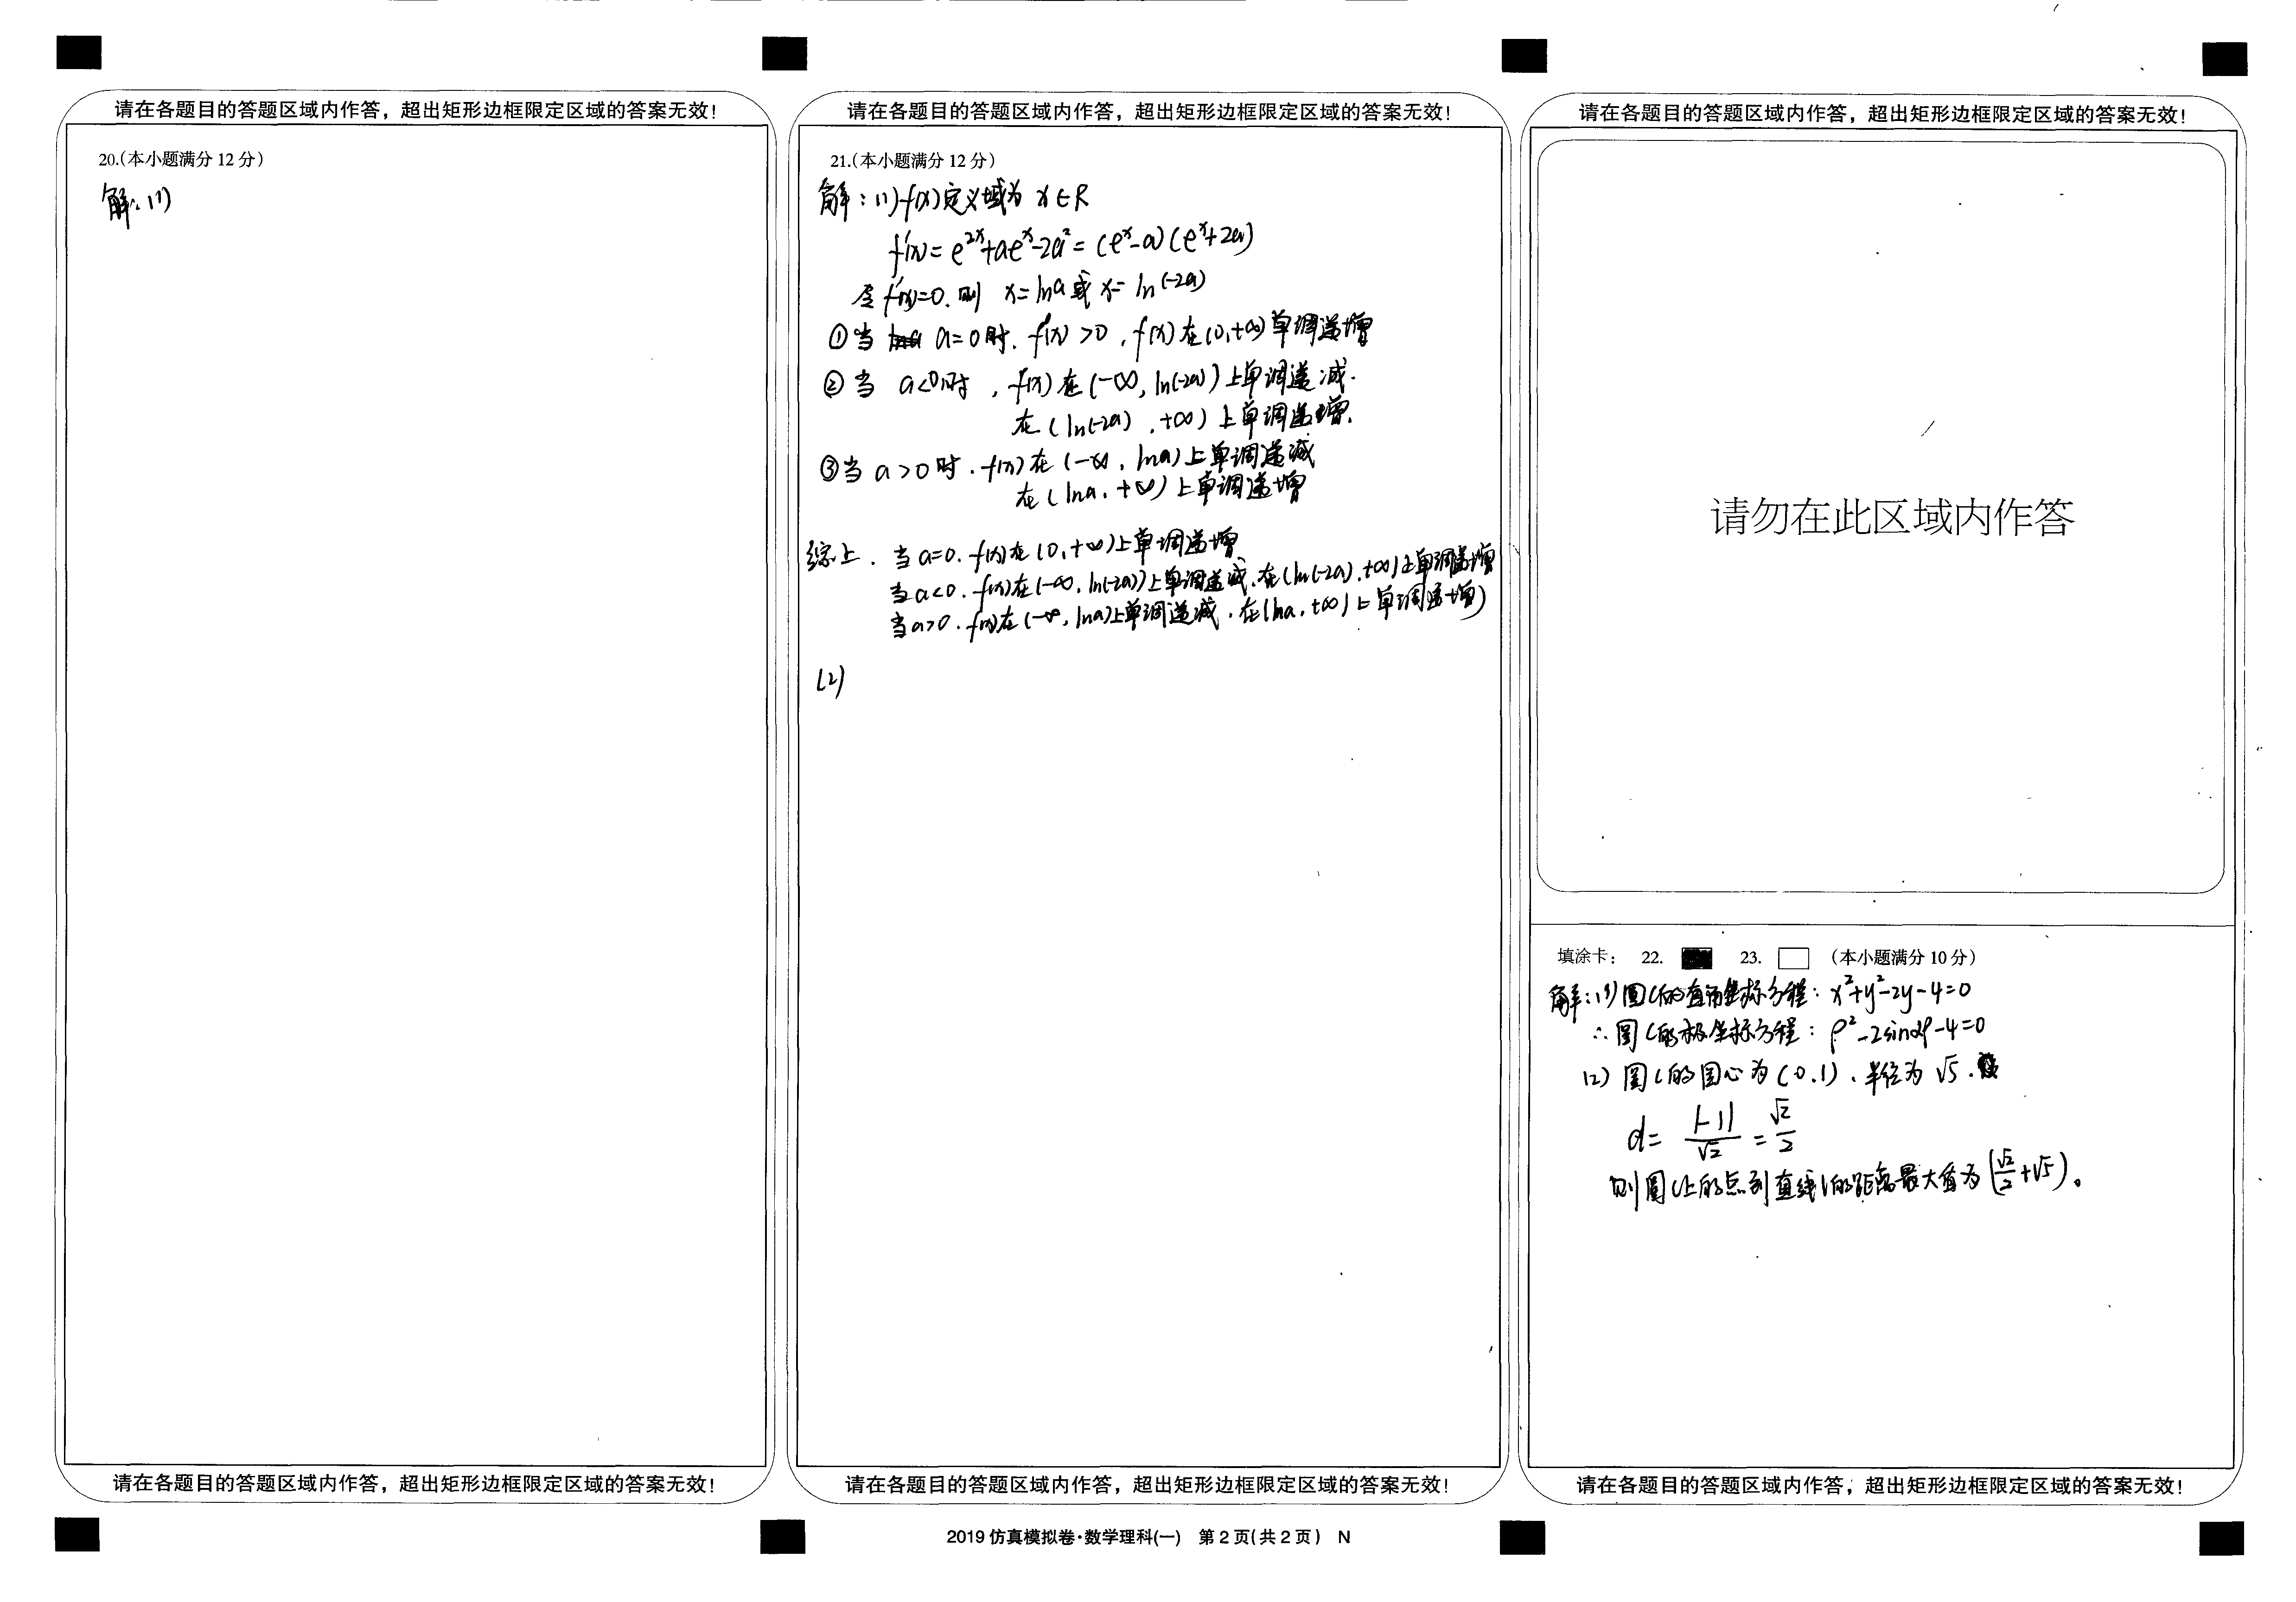 请在各题目的答题区域内作答，超出矩形边框限定区域的答案无效！
20.（本小题满分 12 分）
解：(1)
请在各题目的答题区域内作答，超出矩形边框限定区域的答案无效！
请在各题目的答题区域内作答，超出矩形边框限定区域的答案无效！
21.（本小题满分 12 分）
解：(1) f(x)定义域为 x∈R
f'(x)=e^{2x}+ae^x-2a²=(e^x-a)(e^x+2a)
令f'(x)=0.则 x=lna或x=ln(-2a)
①当 a=0时. f'(x)>0, f(x)在(0,+∞)单调递增
②当 a<0时, f(x)在(-∞,ln(-2a))上单调递减.
在(ln(-2a),+∞)上单调递增.
③当a>0时. f(x)在(-∞,lna)上单调递减
在(lna,+∞)上单调递增
综上. 当a=0. f(x)在(0,+∞)上单调递增
当a<0. f(x)在(-∞,ln(-2a))上单调递减.在(ln(-2a),+∞)上单调递增
当a>0. f(x)在(-∞,lna)上单调递减.在(lna,+∞)上单调递增)
(2)
请在各题目的答题区域内作答，超出矩形边框限定区域的答案无效！
2019 仿真模拟卷·数学理科(一) 第 2 页(共 2 页) N
请在各题目的答题区域内作答，超出矩形边框限定区域的答案无效！
请勿在此区域内作答
填涂卡： 22. 23. （本小题满分 10 分）
解：(1)圆C的直角坐标方程：x²+y²-2y-4=0
∴圆C的极坐标方程：ρ²-2sinαρ-4=0
(2) 圆C的圆心为(0.1)、半径为√5.
d= |-1|/√2 = √2/2
则圆C上的点到直线l的距离最大值为(√2/2+√5)。
请在各题目的答题区域内作答，超出矩形边框限定区域的答案无效！